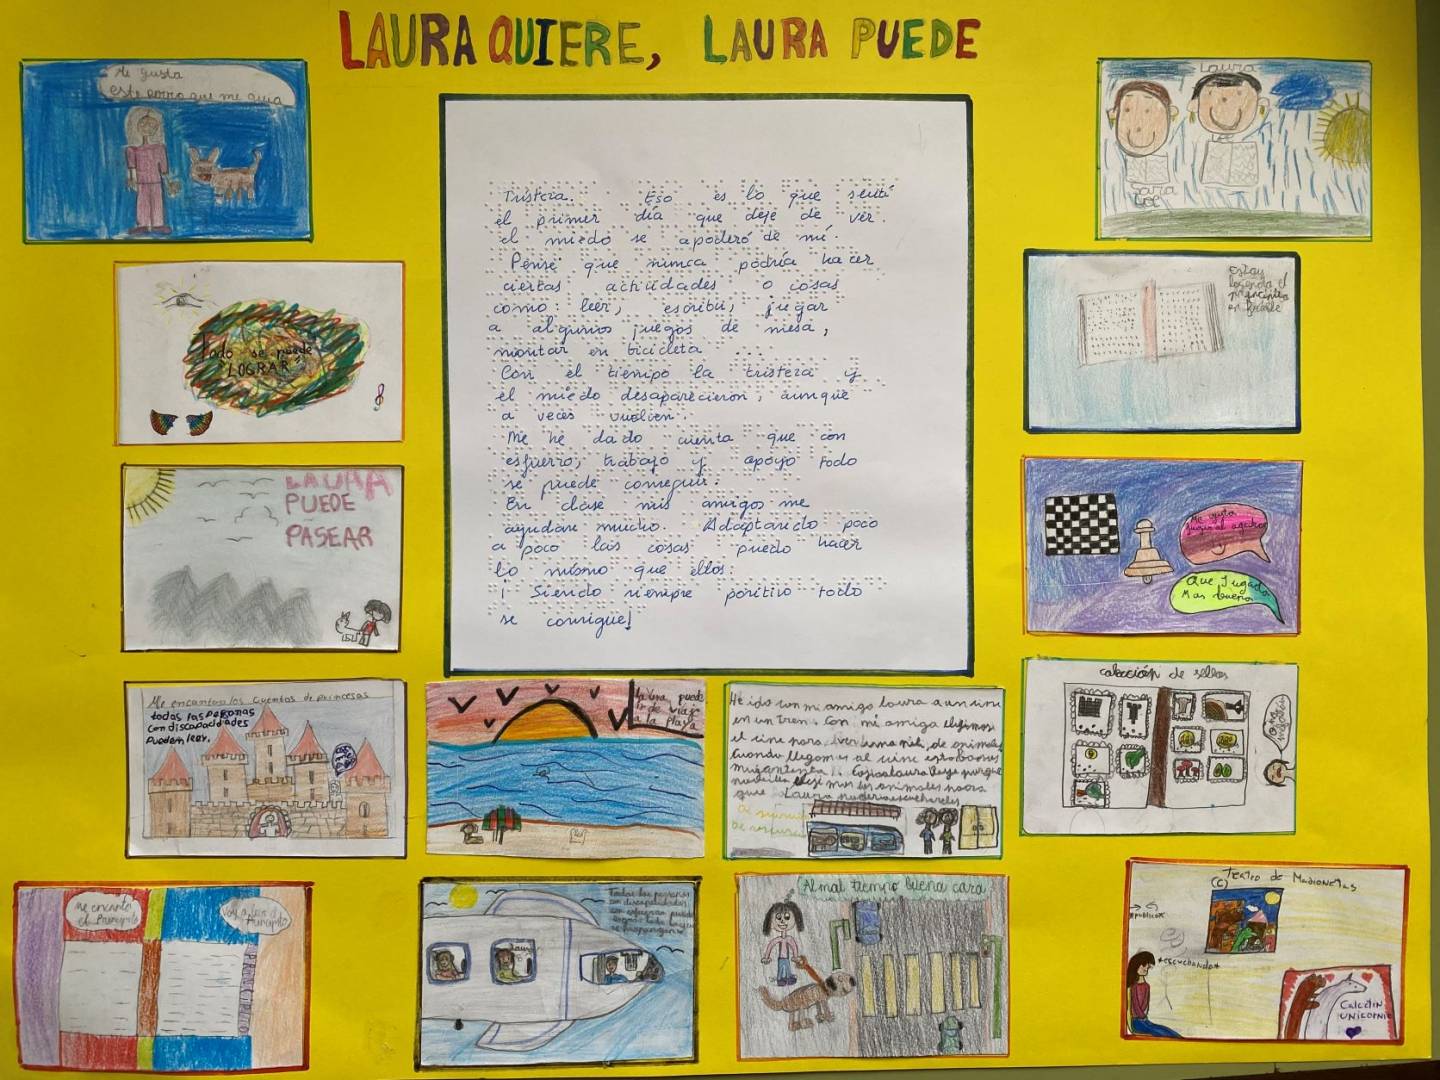 LAURA QUIERE, LAURA PUEDE
Me gusta
este perro que me guia
Laura
LEE
Sara
LEE
Tristeza. Eso es lo que sentí
el primer día que deje de ver.
el miedo se apoderó de mí
Pensé que nunca podría hacer
ciertas actividades o cosas
como: leer, escribir, jugar
a algunos juegos de mesa,
montar en bicicleta ...
Con el tiempo la tristeza y
el miedo desaparecieron, aunque
a veces vuelven.
Me he dado cuenta que con
esfuerzo, trabajo y apoyo todo
se puede conseguir.
En clase mis amigos me
ayudan mucho. Adaptando poco
a poco las cosas puedo hacer
lo mismo que ellos.
¡ Siendo siempre positivo todo
se consigue!
Todo se puede
"LOGRAR"
Estoy
leyendo el
principito
en braile
LAURA
PUEDE
PASEAR
Me gusta
jugar al ajedrez
Que Jugada
Mas buena
Me encantan los cuentos de princesas
todas las personas
con discapacidades
pueden leer.
Laura puede
ir de viaje
a la playa
He ido con mi amiga laura a un cine
en un tren. Con mi amiga elegimos
el cine para ver una peli de animales
Cuando llegamos al cine estabamos
colección de sellos
Me encanta
el Principito
Voy a leer el
Principito
PRINCIPITO
Todas las personas
con discapacidades
con esfuerzo pueden
lograr todo lo que
se propongan
Laura
Al mal tiempo buena cara
Teatro de Marionetas
(C)
*publico*
*escuchando*
CALCETIN
UNICORNIO